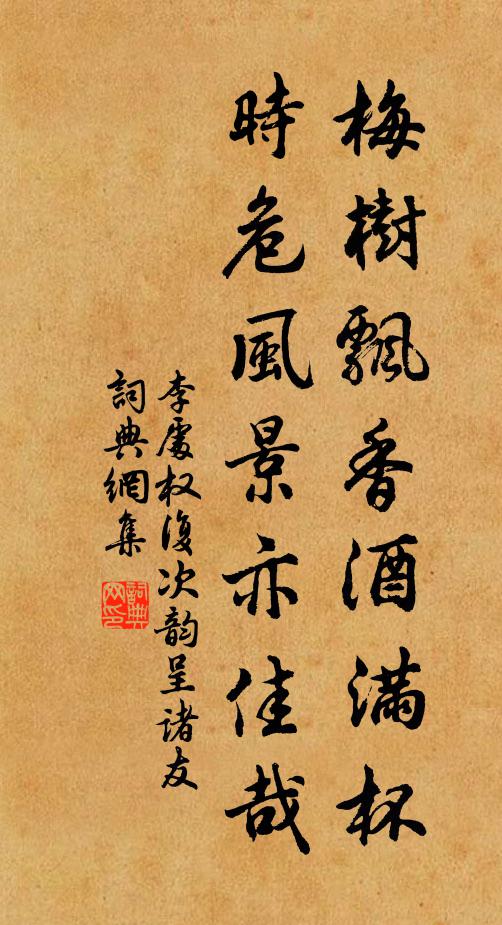 梅樹飄香酒滿杯
時危風景亦佳哉
李處权復次韵呈诸友
詞典網集
詞典网印